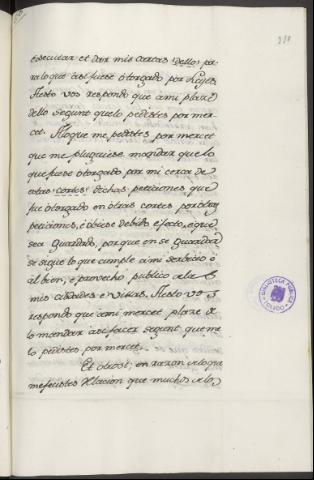 esecutar et dar mis cartas dello pa-
ra lo que asi fuese otorgado por Leyes.
A esto vos respondo que a mi place
dello segunt que lo pedistes por mer-
cet. A lo que me pedistes por mercet
que me pluguiese mandar que lo
que fuese otorgado por mi cerca de
estas cortes dichas peticiones que
fue otorgado en otras cortes por otras
peticiones, e obiese debido efecto, e que
sea guardado, por que en se guardar
se sigue lo que cumple a mi serbicio e
al bien, e provecho publico de
mis cibdades e villas. A esto vos
respondo que a mi mercet place de
lo mandar asi facer segunt que me
lo pedistes por mercet.
Et otrosi, en razon de lo que
me fecistes relacion que muchos de los
BIBLIOTECA
TOLEDO